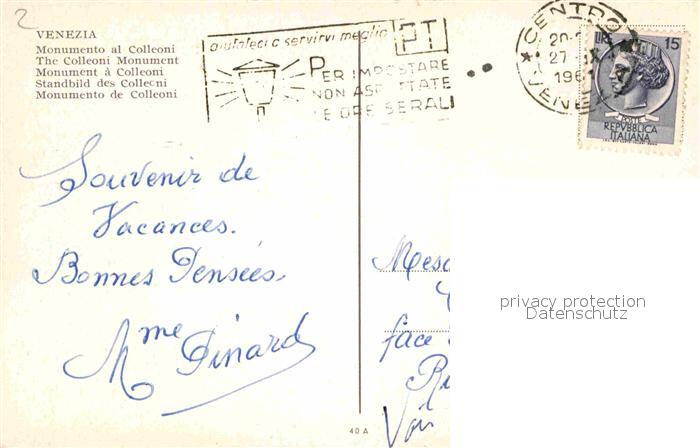 2
VENEZIA
Monumento al Colleoni
The Colleoni Monument
Monument à Colleoni
Standbild des Colleoni
Monumento de Colleoni
aiutateci a servirvi meglio
PT
PER IMPOSTARE
NON ASPETTATE
LE ORE SERALI
CENTRO
27
196
LIRE 15
POSTE
REPVBBLICA
ITALIANA
Souvenir de
Vacances.
Bonnes Pensées.
Mme Pinard
Mesd
face
Voir
privacy protection
Datenschutz
40 A